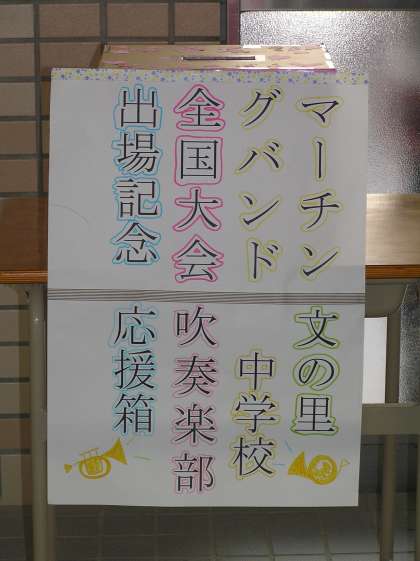 マーチン
グバンド
全国大会
出場記念
文の里
中学校
吹奏楽部
応援箱